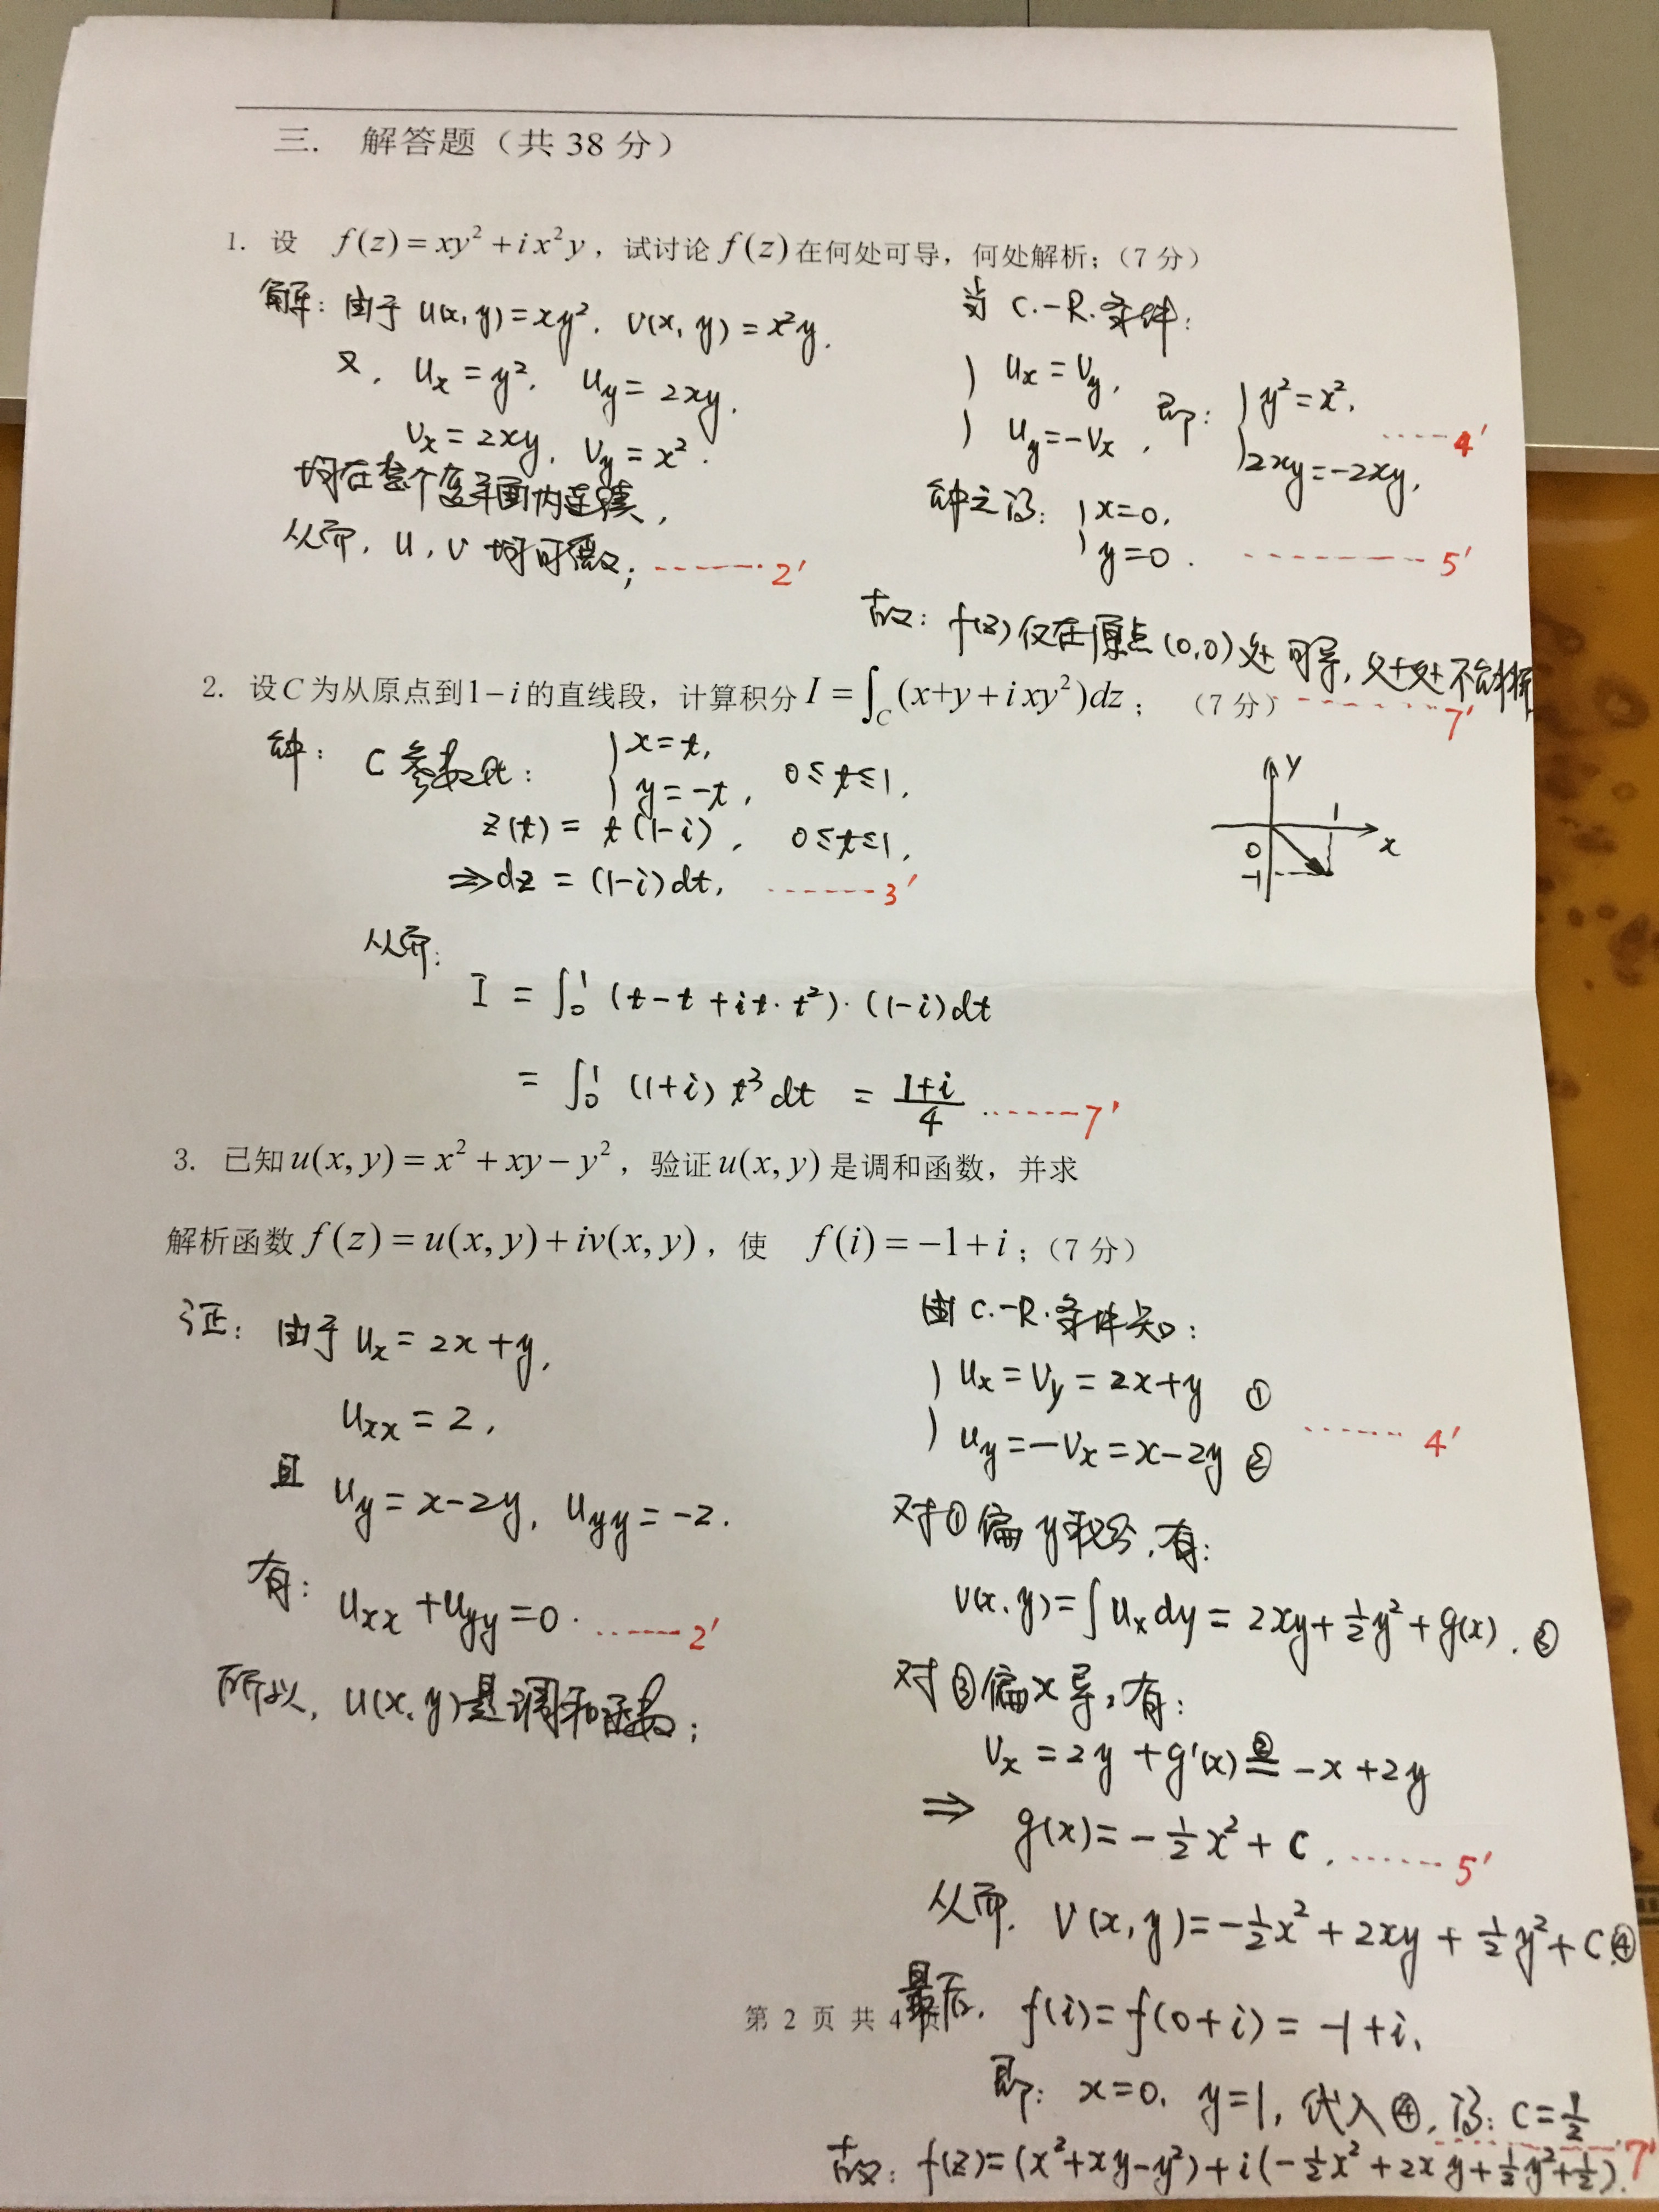 三. 解答题（共 38 分）
1. 设 f(z) = xy² + i x²y，试讨论 f(z) 在何处可导，何处解析；（7 分）
解：由于 u(x, y) = xy², v(x, y) = x²y.
又, u_x = y², u_y = 2xy,
v_x = 2xy, v_y = x².
均在整个复平面内连续,
从而, u, v 均可微; ------- 2'
当 C.-R. 条件:
{ u_x = v_y, 即: { y² = x²,
{ u_y = -v_x, { 2xy = -2xy, ----- 4'
解之得: { x=0,
{ y=0. -------- 5'
故: f(z) 仅在原点 (0,0) 处可导, 处处不解析
------- 7'
2. 设 C 为从原点到 1-i 的直线段，计算积分 I = ∫_C (x+y+i xy²)dz； （7 分）
解: C 参数式: { x=t,
{ y=-t, 0≤t≤1,
z(t) = t(1-i), 0≤t≤1,
⇒ dz = (1-i)dt, ------ 3'
y
1
0 x
-1
从而:
I = ∫₀¹ (t-t+it·t²)·(1-i)dt
= ∫₀¹ (1+i) t³ dt = (1+i)/4 ------ 7'
3. 已知 u(x, y) = x² + xy - y²，验证 u(x, y) 是调和函数，并求
解析函数 f(z) = u(x, y) + iv(x, y)，使 f(i) = -1+i；（7 分）
证: 由于 u_x = 2x+y,
u_xx = 2,
且 u_y = x-2y, u_yy = -2.
有: u_xx + u_yy = 0. ------ 2'
所以, u(x, y) 是调和函数;
由 C.-R. 条件知:
{ u_x = v_y = 2x+y ①
{ u_y = -v_x = x-2y ② ------ 4'
对①偏 y 积分, 有:
v(x, y) = ∫ u_x dy = 2xy + ½y² + g(x). ③
对③偏 x 导, 有:
v_x = 2y + g'(x) ②= -x+2y
⇒ g(x) = -½x² + C. ------ 5'
从而, v(x, y) = -½x² + 2xy + ½y² + C. ④
最后, f(i) = f(0+i) = -1+i,
第 2 页 共 4 页
即: x=0, y=1, 代入④, 得: C=½
故: f(z) = (x²+xy-y²) + i(-½x²+2xy+½y²+½). 7'